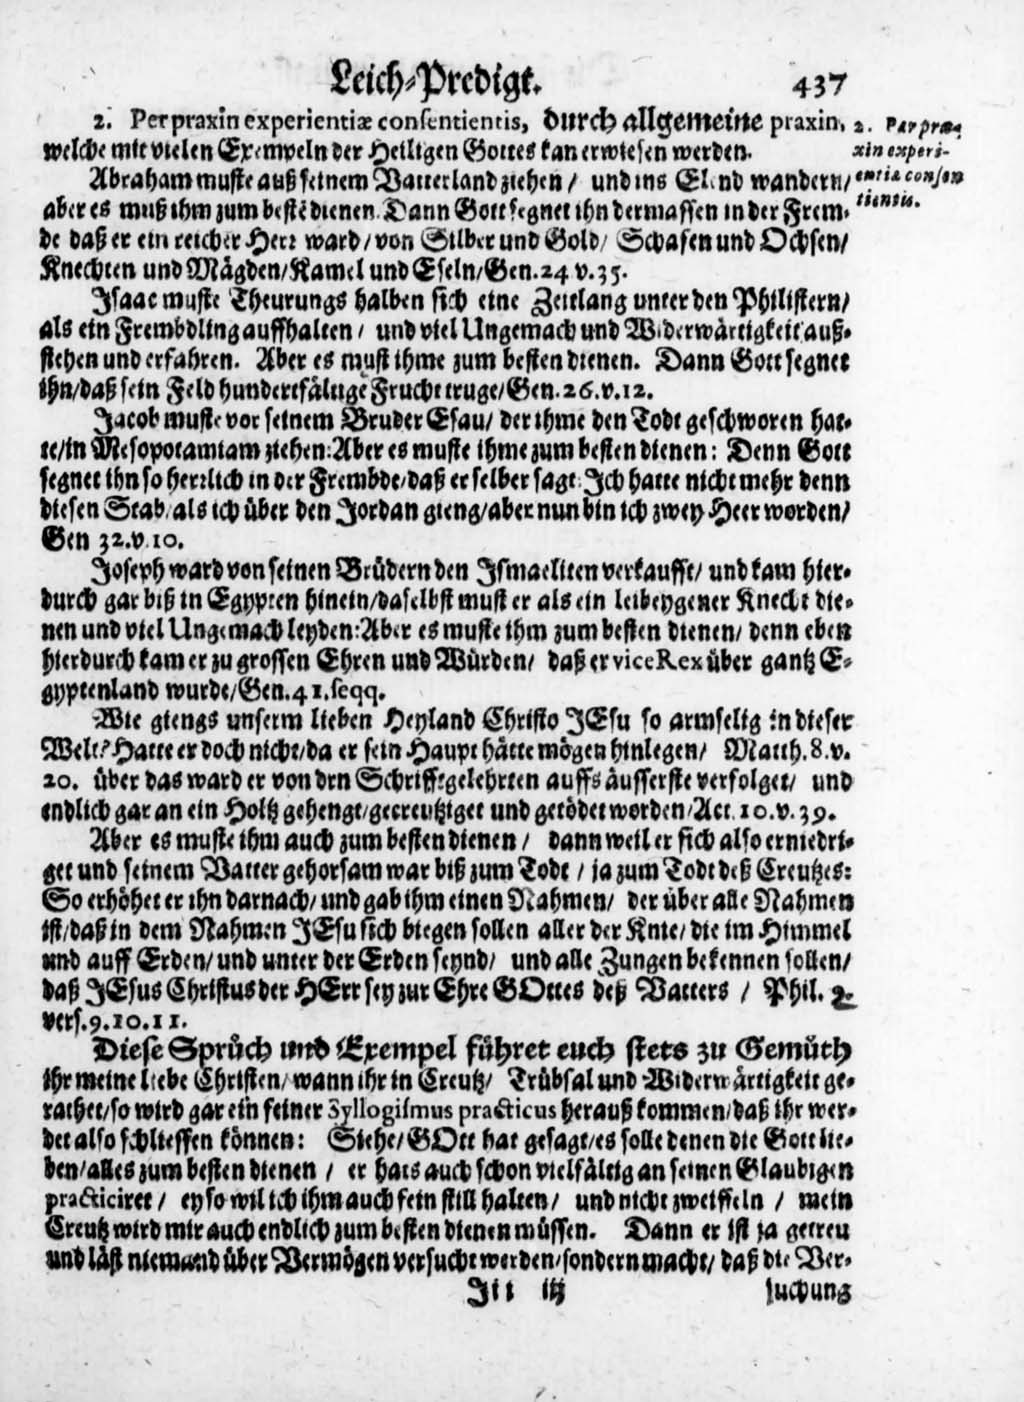 Leich-Predigt. 437
2. Per praxin experientiæ consentientis, durch allgemeine praxin,
welche mit vielen Exempeln der Heiligen Gottes kan erwiesen werden.
2. Per pra-
xin experi-
entiæ consen
tientis.
Abraham muste auß seinem Vatterland ziehen / und ins Elend wandern/
aber es muß ihm zum bestē dienen. Dann Gott segnet ihn dermassen in der Frem-
de daß er ein reicher Herr ward/von Silber und Gold/ Schafen und Ochsen/
Knechten und Mägden/Kamel und Eseln/Gen.24 v.35.
Isaac muste Theurungs halben sich eine Zeitlang unter den Philistern/
als ein Frembdling auffhalten / und viel Ungemach und Widerwärtigkeit auß-
stehen und erfahren. Aber es must ihme zum besten dienen. Dann Gott segnet
ihn/daß sein Feld hundertfältige Frucht truge/Gen.26.v.12.
Jacob muste vor seinem Bruder Esau/ der ihme den Todt geschworen hat-
te/in Mesopotamiam ziehen:Aber es muste ihme zum besten dienen: Denn Gott
segnet ihn so herrlich in der Frembde/daß er selber sagt:Ich hatte nicht mehr denn
diesen Stab/als ich über den Jordan gieng/aber nun bin ich zwey Heer worden/
Gen 32.v.10.
Joseph ward von seinen Brüdern den Ismaeliten verkaufft/ und kam hier-
durch gar biß in Egypten hinein/daselbst must er als ein leibeygener Knecht die-
nen und viel Ungemach leyden:Aber es muste ihm zum besten dienen/ denn eben
hierdurch kam er zu grossen Ehren und Würden/ daß er vice Rex über gantz E-
gyptenland wurde/Gen.41.seqq.
Wie giengs unserm lieben Heyland Christo JEsu so armselig in dieser
Welt?Hatte er doch nicht/da er sein Haupt hätte mögen hinlegen/ Matth.8.v.
20. über das ward er von den Schrifftgelehrten auffs äusserste verfolget/ und
endlich gar an ein Holtz gehengt/gecreutziget und getödet worden/Act.10.v.39.
Aber es muste ihm auch zum besten dienen / dann weil er sich also erniedri-
get und seinem Vatter gehorsam war biß zum Todt / ja zum Todt deß Creutzes:
So erhöhet er ihn darnach/ und gab ihm einen Nahmen/ der über alle Nahmen
ist/daß in dem Nahmen JEsu sich biegen sollen aller der Knie/ die im Himmel
und auff Erden/ und unter der Erden seynd/ und alle Zungen bekennen sollen/
daß JEsus Christus der HErr sey zur Ehre GOttes deß Vatters / Phil. 2.
vers.9.10.11.
Diese Sprüch und Exempel führet euch stets zu Gemüth
ihr meine liebe Christen/ wann ihr in Creutz/ Trübsal und Widerwärtigkeit ge-
rathet/so wird gar ein feiner Syllogismus practicus herauß kommen/daß ihr wer-
det also schliessen können: Siehe/GOtt hat gesagt/es solle denen die Gott lie-
ben/alles zum besten dienen / er hats auch schon vielfältig an seinen Glaubigen
practiciret / ey so wil ich ihm auch fein still halten/ und nicht zweiffeln / mein
Creutz wird mir auch endlich zum besten dienen müssen. Dann er ist ja getreu
und läst niemand über Vermögen versucht werden/sondern macht/ daß die Ver-
Iii iij suchung